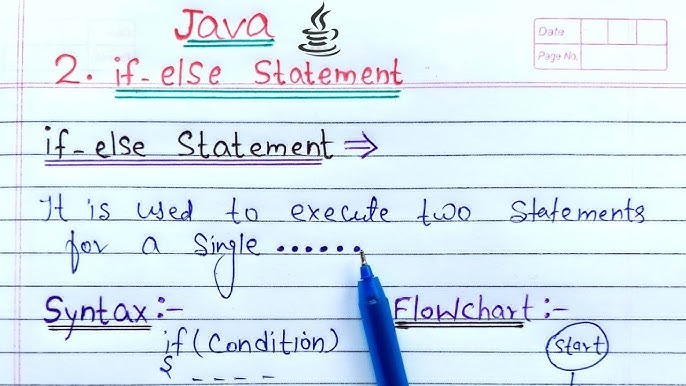 Java
Date
Page No.
2. if-else Statement
if-else Statement ⇒
It is used to execute two Statements
for a Single ......
Syntax :-
Flowchart :-
if (Condition)
{ - - - -
Start